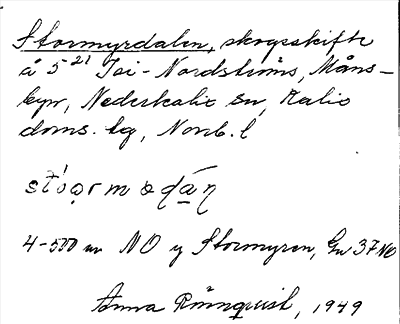 Stormyrdalen, skogsskifte
å 5²¹ Isi-Nordströms, Måns-
byn, Nederkalix sn, Kalix
doms. tg, Norrb. l
4-500 m NO y Stormyren, Gu 37 NO
Anna Rönnqvist, 1949